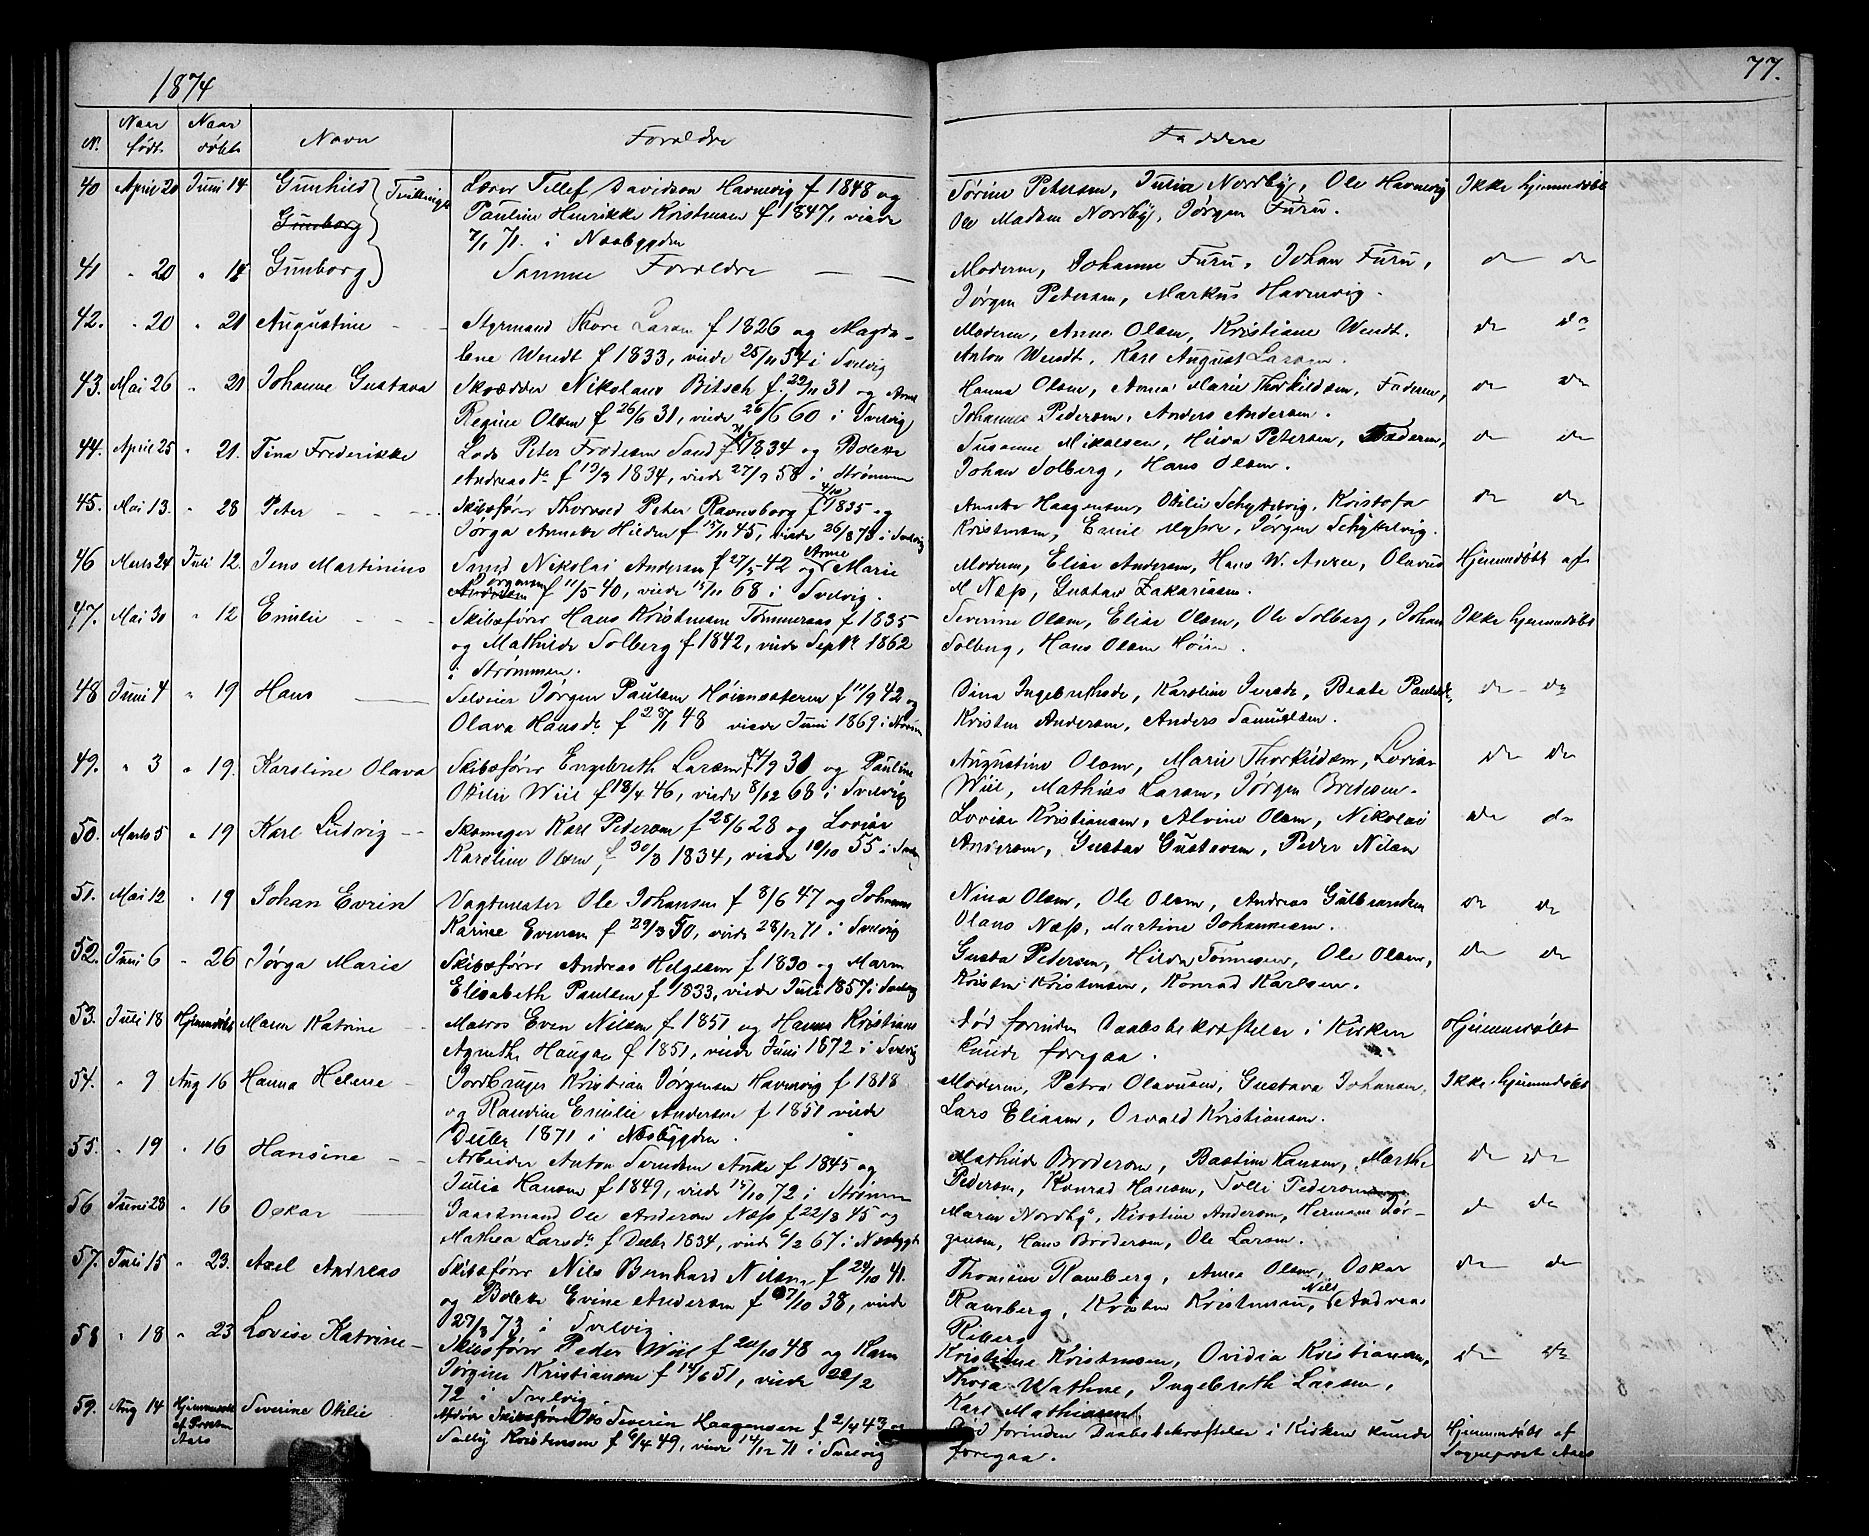 1874
77.
N. Naar født Naar døbt Navn Forældre Faddere
40 April 20 Juni 14 Gunhild Tvillinger Lærer Tellef Davidson Havnevig f 1848 og Sørine Petersen, Julia Nordby, Ole Havnevig Ikke hjemmedøbt
Gunborg Pauline Henrikke Kristensen f 1847, viede Ole Madsen Nordby, Jørgen Furu.
7/1 71. i Næsbygden
41 " 20 " 14 Gunborg Samme Forældre Moderen, Johanne Furu, Johan Furu, do do
Jørgen Petersen, Markus Havnevig.
42. " 20 " 21 Augustine Styrmand Thore Larsen f 1826 og Magda- Moderen, Anne Olsen, Kristiane Wendt. do do
lene Wendt f 1833, viede 25/11 54 i Svelvig Anton Wendt, Karl August Larsen.
43. Mai 26 " 21 Johanne Gustava Skrædder Nikolaus Bitsch f 22/11 31 og Anne Hanna Olsen, Anna Marie Thorkildsen, Faderen, do do
Regine Olsen f 26/6 31, viede 26/6 60 i Svelvig Johannes Pedersen, Anders Andersen.
44. April 25 " 21. Tina Frederikke Lods Peter Frodesen Sand f 1834 og Bolette Susanne Mikalsen, Hilda Petersen, Faderen, do do
Andreasdr. f 19/3 1834, viede 27/9 58 i Strømmen Johan Solberg, Hans Olsen.
45. Mai 13. " 28 Peter Skibsfører Thorvald Peter Ravnsborg f 4/10 1835 og Annette Haagensen, Otilie Schykelvig, Kristofa do do
Jørga Annette Hieden f 15/11 45, viede 26/8 73 i Svelvig Kristensen, Emil Myhre, Jørgen Schykelvig.
46 Marts 24 Juli 12. Jens Martinius Smed Nikolai Andersen f 27/5 42 og Anne Marie Moderen, Elise Andersen, Hans W. Andersen, Olavus Hjemmedøbt af
Jørgensen f 11/5 40, viede 15/11 68 i Svelvig. M Næss, Gustav Zakariasen.
47. Mai 30 " 12 Emilie Skibsfører Hans Kristensen Tømmeraas f 1835 Severine Olsen, Elise Olsen, Ole Solberg, Johan Ikke hjemmedøbt
og Mathilde Solberg f 1842, viede Septbr 1862 Solberg, Hans Olsen Høien.
i Strømmen.
48 Juni 4 " 19 Hans Selveier Jørgen Paulsen Høienssæteren f 11/9 42 og Dina Ingebrethsdr, Karoline Iversdr, Beate Paulsdr, do do
Olava Hansdr. f 28/1 48 viede Juni 1869 i Strømmen Kristen Andersen, Anders Samuelsen.
49. " 3 " 19. Karoline Olava Skibsfører Engebreth Larsen f 14/9 30 og Pauline Augustine Olsen, Marie Thorkildsen, Lovise do do
Otilie Wiil f 18/4 46, viede 8/12 68 i Svelvig Wiil, Mathias Larsen, Jørgen Bredesen.
50. Marts 5 " 19 Karl Ludvig Skomager Karl Pedersen f 28/6 28 og Lovise Lovise Kristiansen, Alvine Olsen, Nikolai do do
Karoline Olsen f 30/3 1834, viede 10/10 55 i Svelvig Andersen, Gustav Gustavsen, Peder Nilsen
51. Mai 12 " 19 Johan Evrin Vagtmester Ole Johansen f 8/6 47 og Johanne Nina Olsen, Ole Olsen, Andreas Gulbrandsen do do
Karine Evensen f 29/3 50, viede 28/12 71 i Svelvig Olaus Næss, Martine Johannesen.
52. Juni 6 " 26 Jørga Marie Skibsfører Andreas Helgesen f 1830 og Maren Gusta Pedersen, Hilda Tønnesen, Ole Olsen, do do
Elisabeth Paulsen f 1833, viede Juli 1857 i Svelvig Kristen Kristensen, Konrad Karlsen.
53. Juli 18 Hjemmedøbt Maren Katrine Matros Even Nilsen f 1851 og Hanna Kristiane Død forinden Daabsbekræftelse i Kirken Hjemmedøbt
Agnethe Haugan f 1851, viede Juni 1872 i Svelvig kunde foregaa.
54. " 9 Aug 16 Hanna Helene Jordbruger Kristian Jørgensen Havnevig f 1818 Moderen, Petra Olavusen, Gustava Johansen, Ikke hjemmedøbt
og Randine Emilie Andersen f 1851 viede Lars Eliasen, Osvald Kristiansen.
Decbr 1871 i Næsbygden.
55. " 19 " 16 Hansine Arbeider Anton Svendsen Aske f 1845 og Mathilde Brodersen, Bastine Hansen, Marthe do do
Julie Hansen f 1849, viede 15/10 72 i Strømmen Pedersen, Konrad Hansen, Tolli Pedersen
56 Juni 28 " 16 Oskar Jaartsmand Ole Andersen Næss f 22/8 45 og Maren Nordby, Kirstine Andersen, Herman Jør- do do
Mathea Larsdr. f Decbr 1834, viede 6/2 67 i Næsbygd gensen, Hans Brodersen, Ole Larsen.
57. Juli 15 " 23. Axel Andreas Skibsfører Nils Bernhard Nilsen f 24/10 41. Thomine Ramberg, Anna Olsen, Oskar do do
og Bolette Evine Andersen f 7/10 38, viede Ramberg, Kristen Kristensen, Nils Andreas
27/3 73 i Svelvig Riberg
58 " 18 " 23 Lovise Katrine Skibsfører Peder Wiil f 20/10 48 og Karen Kristiane Kristensen, Ovidia Kristiansen, do do
Jørgine Kristiansen f 14/6 51, viede 22/2 Thora Wathne, Ingebreth Larsen,
72 i Svelvig. Karl Mathiesen
59. Aug 14 Hjemmedøbt af Presten Aars Severine Otilie Afdøde Skibsfører Ole Severin Haagensen f 2/4 43 og Død forinden Daabsbekræftelse i Kirken kunde Hjemmedøbt af
Sally Kristensen f 6/4 49, viede 14/12 71 i Svelvig foregaa. Sogneprest Aars